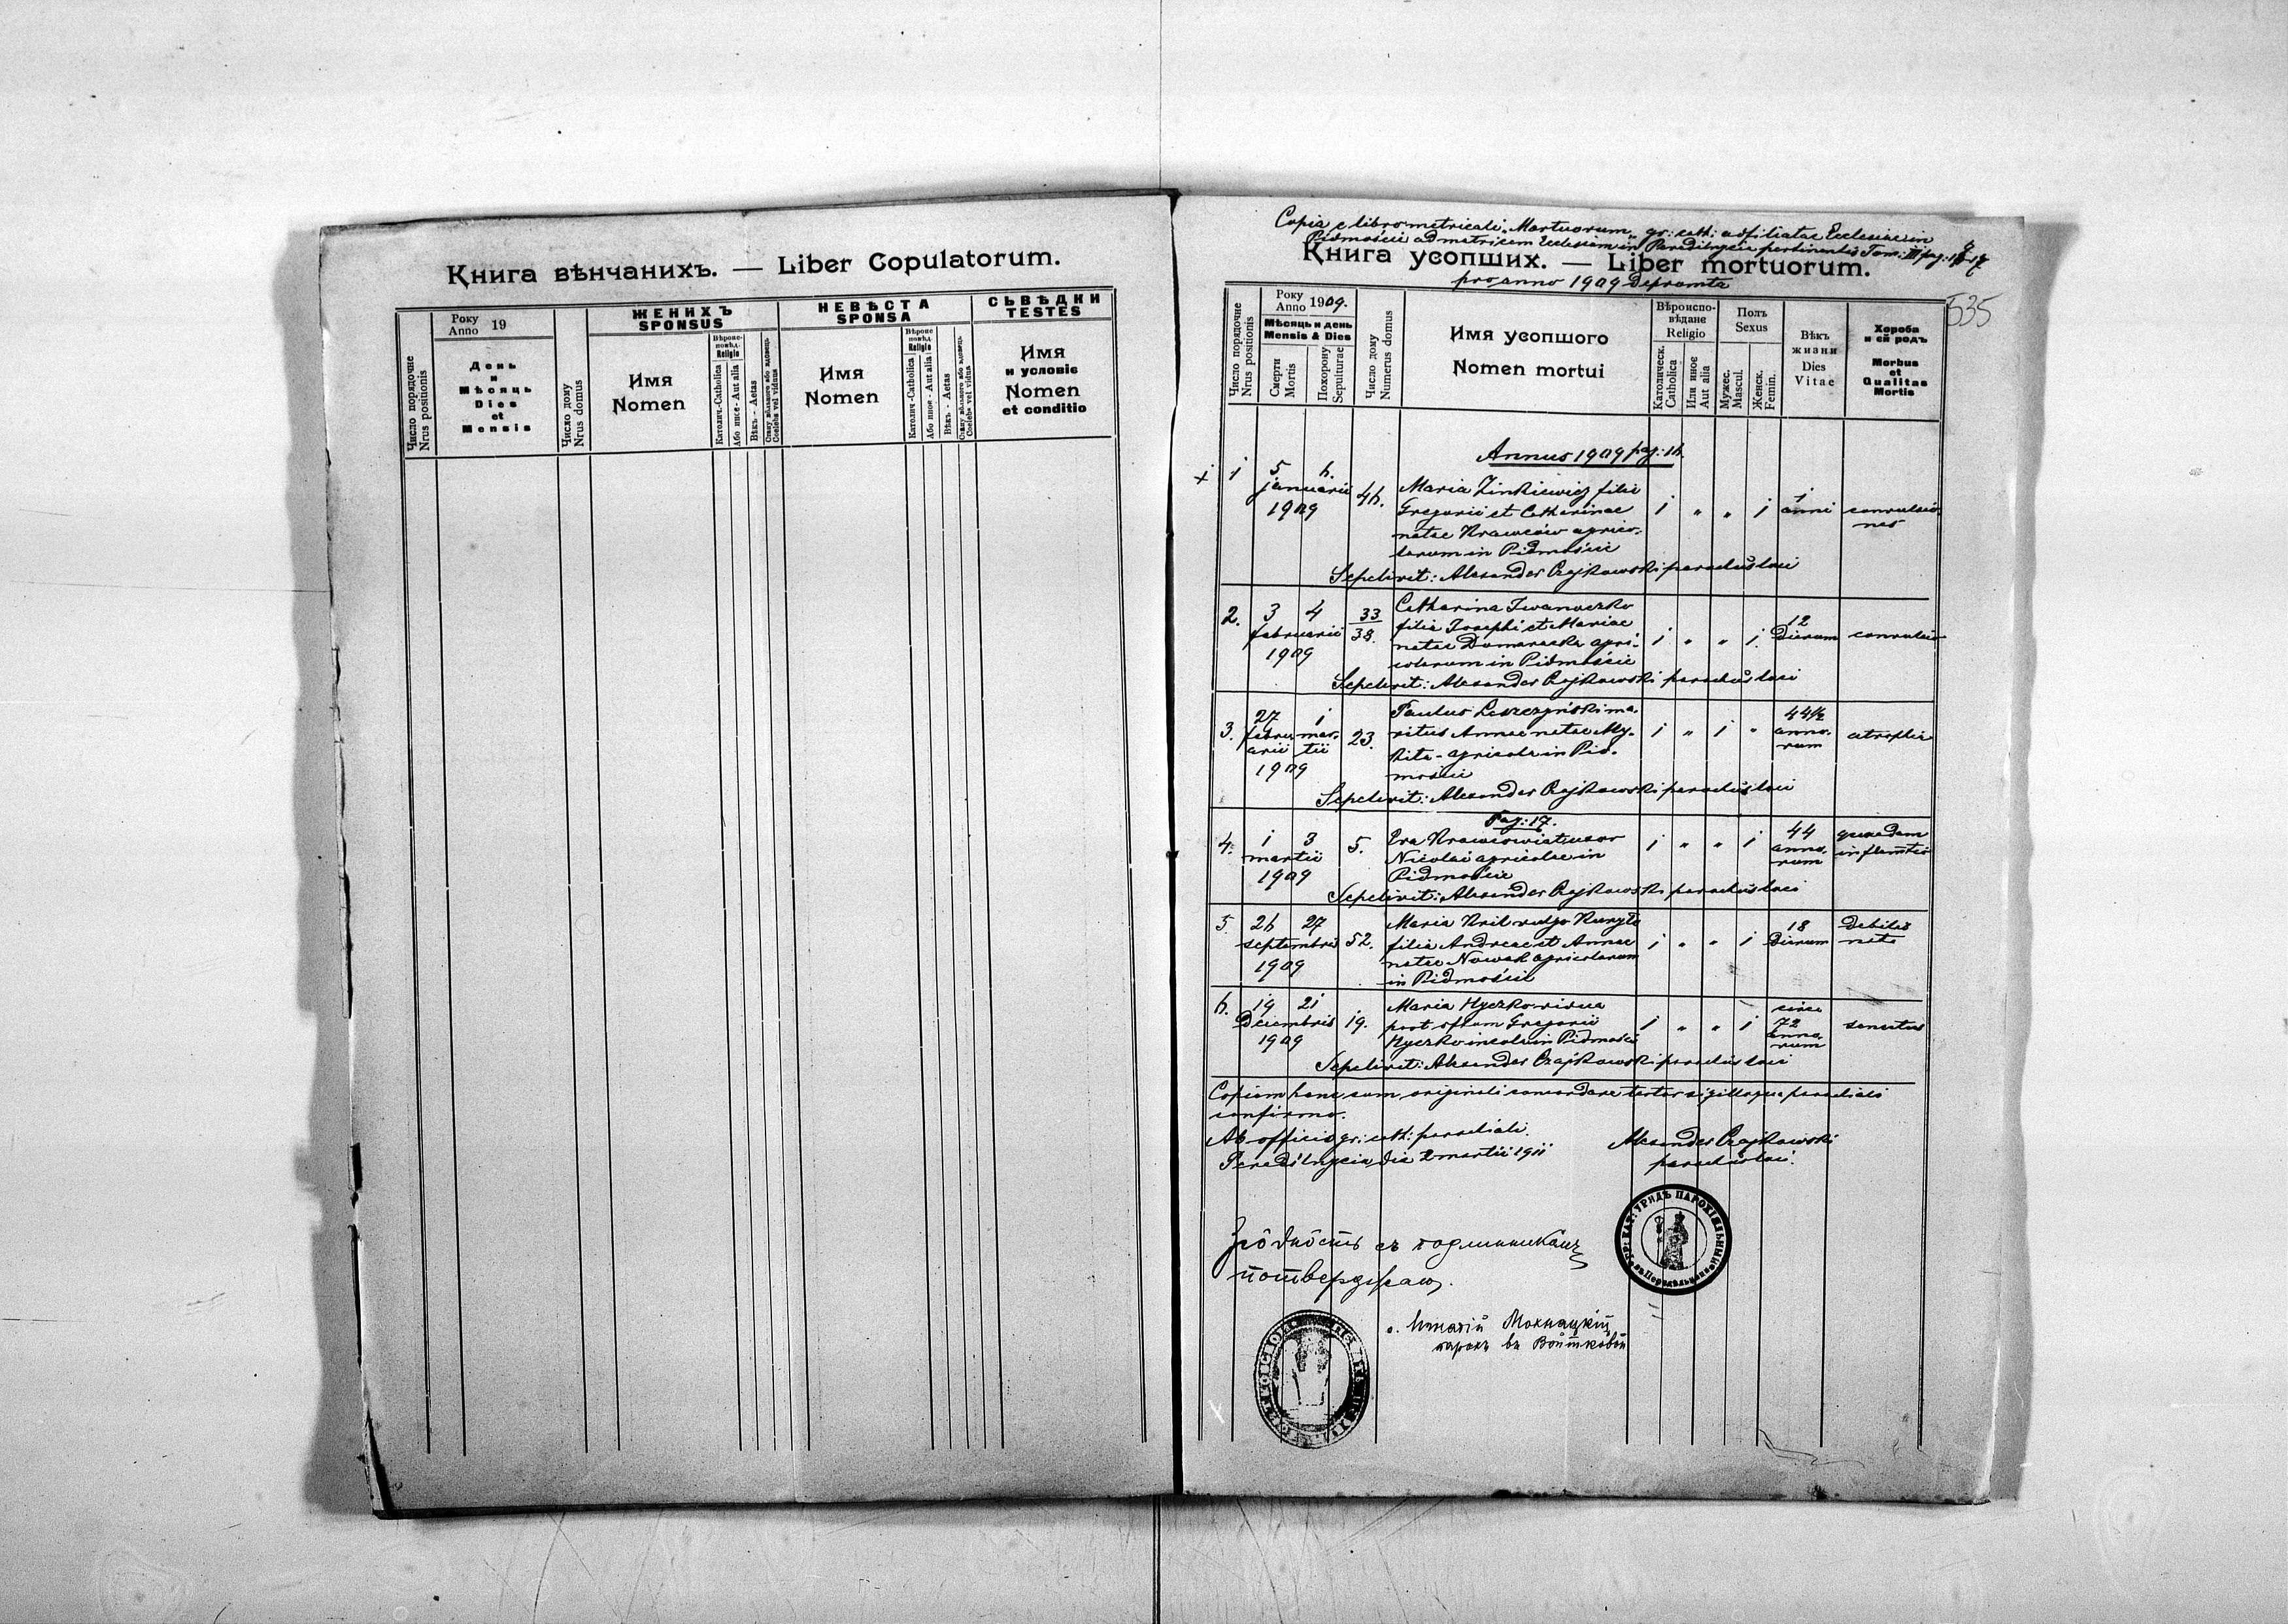 Книга вѣнчаних. — Liber Copulatorum.
Число порядочне
Nrus positionis
Року
Anno 19
День
и
Мѣсяць
Dies
et
Mensis
Число дому
Nrus domus
ЖЕНИХЪ
SPONSUS
Имя
Nomen
Вѣроис-
повѣд.
Religio
Католич.-Catholica
Або инне - Aut alia
Вѣкъ - Aetas
Стану вѣльного або вдовець
Coelebs vel viduus
НЕВѢСТА
SPONSA
Имя
Nomen
Вѣроис
повѣд.
Religio
Католич-Catholica
Або инное - Aut alia
Вѣкъ - Aetas
Стану вѣльного або вдовець
Coelebs vel vidua
СЬВѢДКИ
TESTES
Имя
и условіє
Nomen
et conditio
Copia e libro metricali „Mortuorum„ gr: cath: adfiliatae Ecclesiae in
Pidmoście ad matricem Ecclesiam in Peredilnycia pertinentis Tom: III pag: 16-17
Книга усопших. — Liber mortuorum.
pro anno 1909 Deprompta
535
Число порядочне
Nrus positionis
Року
Anno 1909.
Мѣсяць и день
Mensis & Dies
Смерти
Mortis
Похорону
Sepulturae
Число дому
Numerus domus
Имя усопшого
Nomen mortui
Вѣроиспо-
вѣдане
Religio
Католическ.
Catholica
Или иное
Aut alia
Полъ
Sexus
Мужес.
Mascul.
Женск.
Femin.
Вѣкъ
жизни
Dies
Vitae
Хороба
и єй родъ
Morbus
et
Qualitas
Mortis
Annus 1909 pag: 16.
1 5 6. januarii 1909 46.
Maria Zinkiewicz filia
Gregorii et Catharinae
natae Krawców agrico-
larum in Pidmoście
1 " " 1 1 anni convulsio-
nes
Sepelivit: Alexander Czajkowski parochus loci
2. 3 4 februarii 1909 33/38.
Catharina Iwanoczko
filia Josephi et Mariae
natae Domaracka agri-
colarum in Pidmoście
1 " " 1. 12 dierum convulsio
Sepelivit: Alexander Czajkowski parochus loci
3. 27 februarii 1 martii 1909 23.
Paulus Leszczyński ma-
ritus Annae natae My-
kita - agricola in Pid-
moście
1 " 1 " 44½ annorum atrophia
Sepelivit: Alexander Czajkowski parochus loci
Pag: 17.
4. 1 3 martii 1909 5.
Eva Krawcowiat uxor
Nicolai agricolae in
Pidmoście
1 " " 1 44 annorum quaedam
inflamtio
Sepelivit: Alexander Czajkowski parochus loci
5. 26 27 septembris 1909 52.
Maria Kril vulgo Kuryło
filia Andreae et Annae
natae Nowak agricolarum
in Pidmoście
1 " " 1 18 dierum debilis
nata
6. 19 21 Decembris 1909 19.
Maria Hyczko vidua
post oftum Gregorii
Hyczko incola in Pidmoście
1 " " 1 circa 72 annorum senectus
Sepelivit: Alexander Czajkowski parochus loci
Copiam hanc cum originali concordare testor sigilloque parochiali
confirmo.
Ab officio gr: cath: parochiali.
Peredilnycia, die 2 martii 1911
Alexander Czajkowski
parochus loci.
Згôдность съ подлинникомъ
потверджаю.
о. Игнатій Мохнацкій
парохъ въ Войтковой
ГР: КАТ: УРЯДЪ ПАРОХІЯЛЬНЫЙ